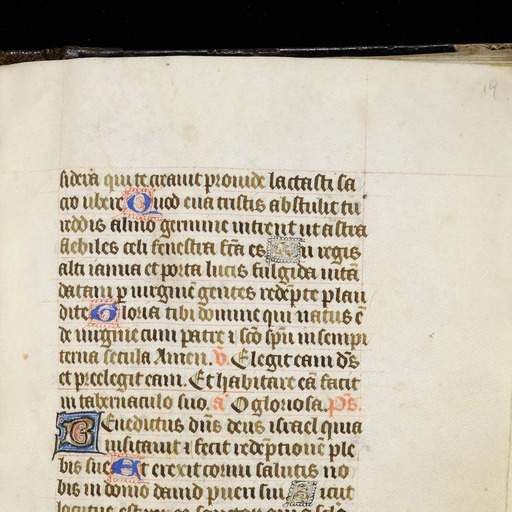 19
sidera qui te creauit prouide lactasti sa
cro ubere Quod eua tristis abstulit tu
reddis almo germine intrent ut astra
flebiles celi fenestra fc̄a es Tu regis
alti ianua et porta lucis fulgida uitā
datam p uirginē gentes redēpte plau
dite Gloria tibi domine qui natus ē
de uirgine cum patre ⁊ sc̄o sp̄u in sempi
terna secula Amen. v̄. Elegit eam ds̄
et preelegit eam. Et habitare eā facit
in tabernaculo suo. a᷎ O gloriosa. ps.
Benedictus dn̄s deus israel quia
uisitauit ⁊ fecit redēptionē ple
bis sue Et erexit cornu salutis no
bis in domo dauid pueri sui Sicut
locutus est per os